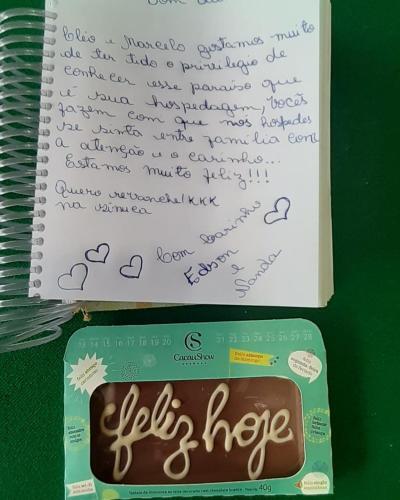 Bom dia
Cléo e Marcelo gostamos muito
de ter tido o privilégio de
conhecer esse paraíso que
é sua hospedagem, vocês
fazem com que nós hospedes
se sinta entre família com
a atenção e o carinho...
Estamos muito feliz!!!
Quero revanche! KKK
na sinuca
Com carinho
Edson e
Nanda
13 14 15 16 17 18 19 20 21 22 23 24 25 26 27 28
CS
CacauShow
feliz hoje
40g